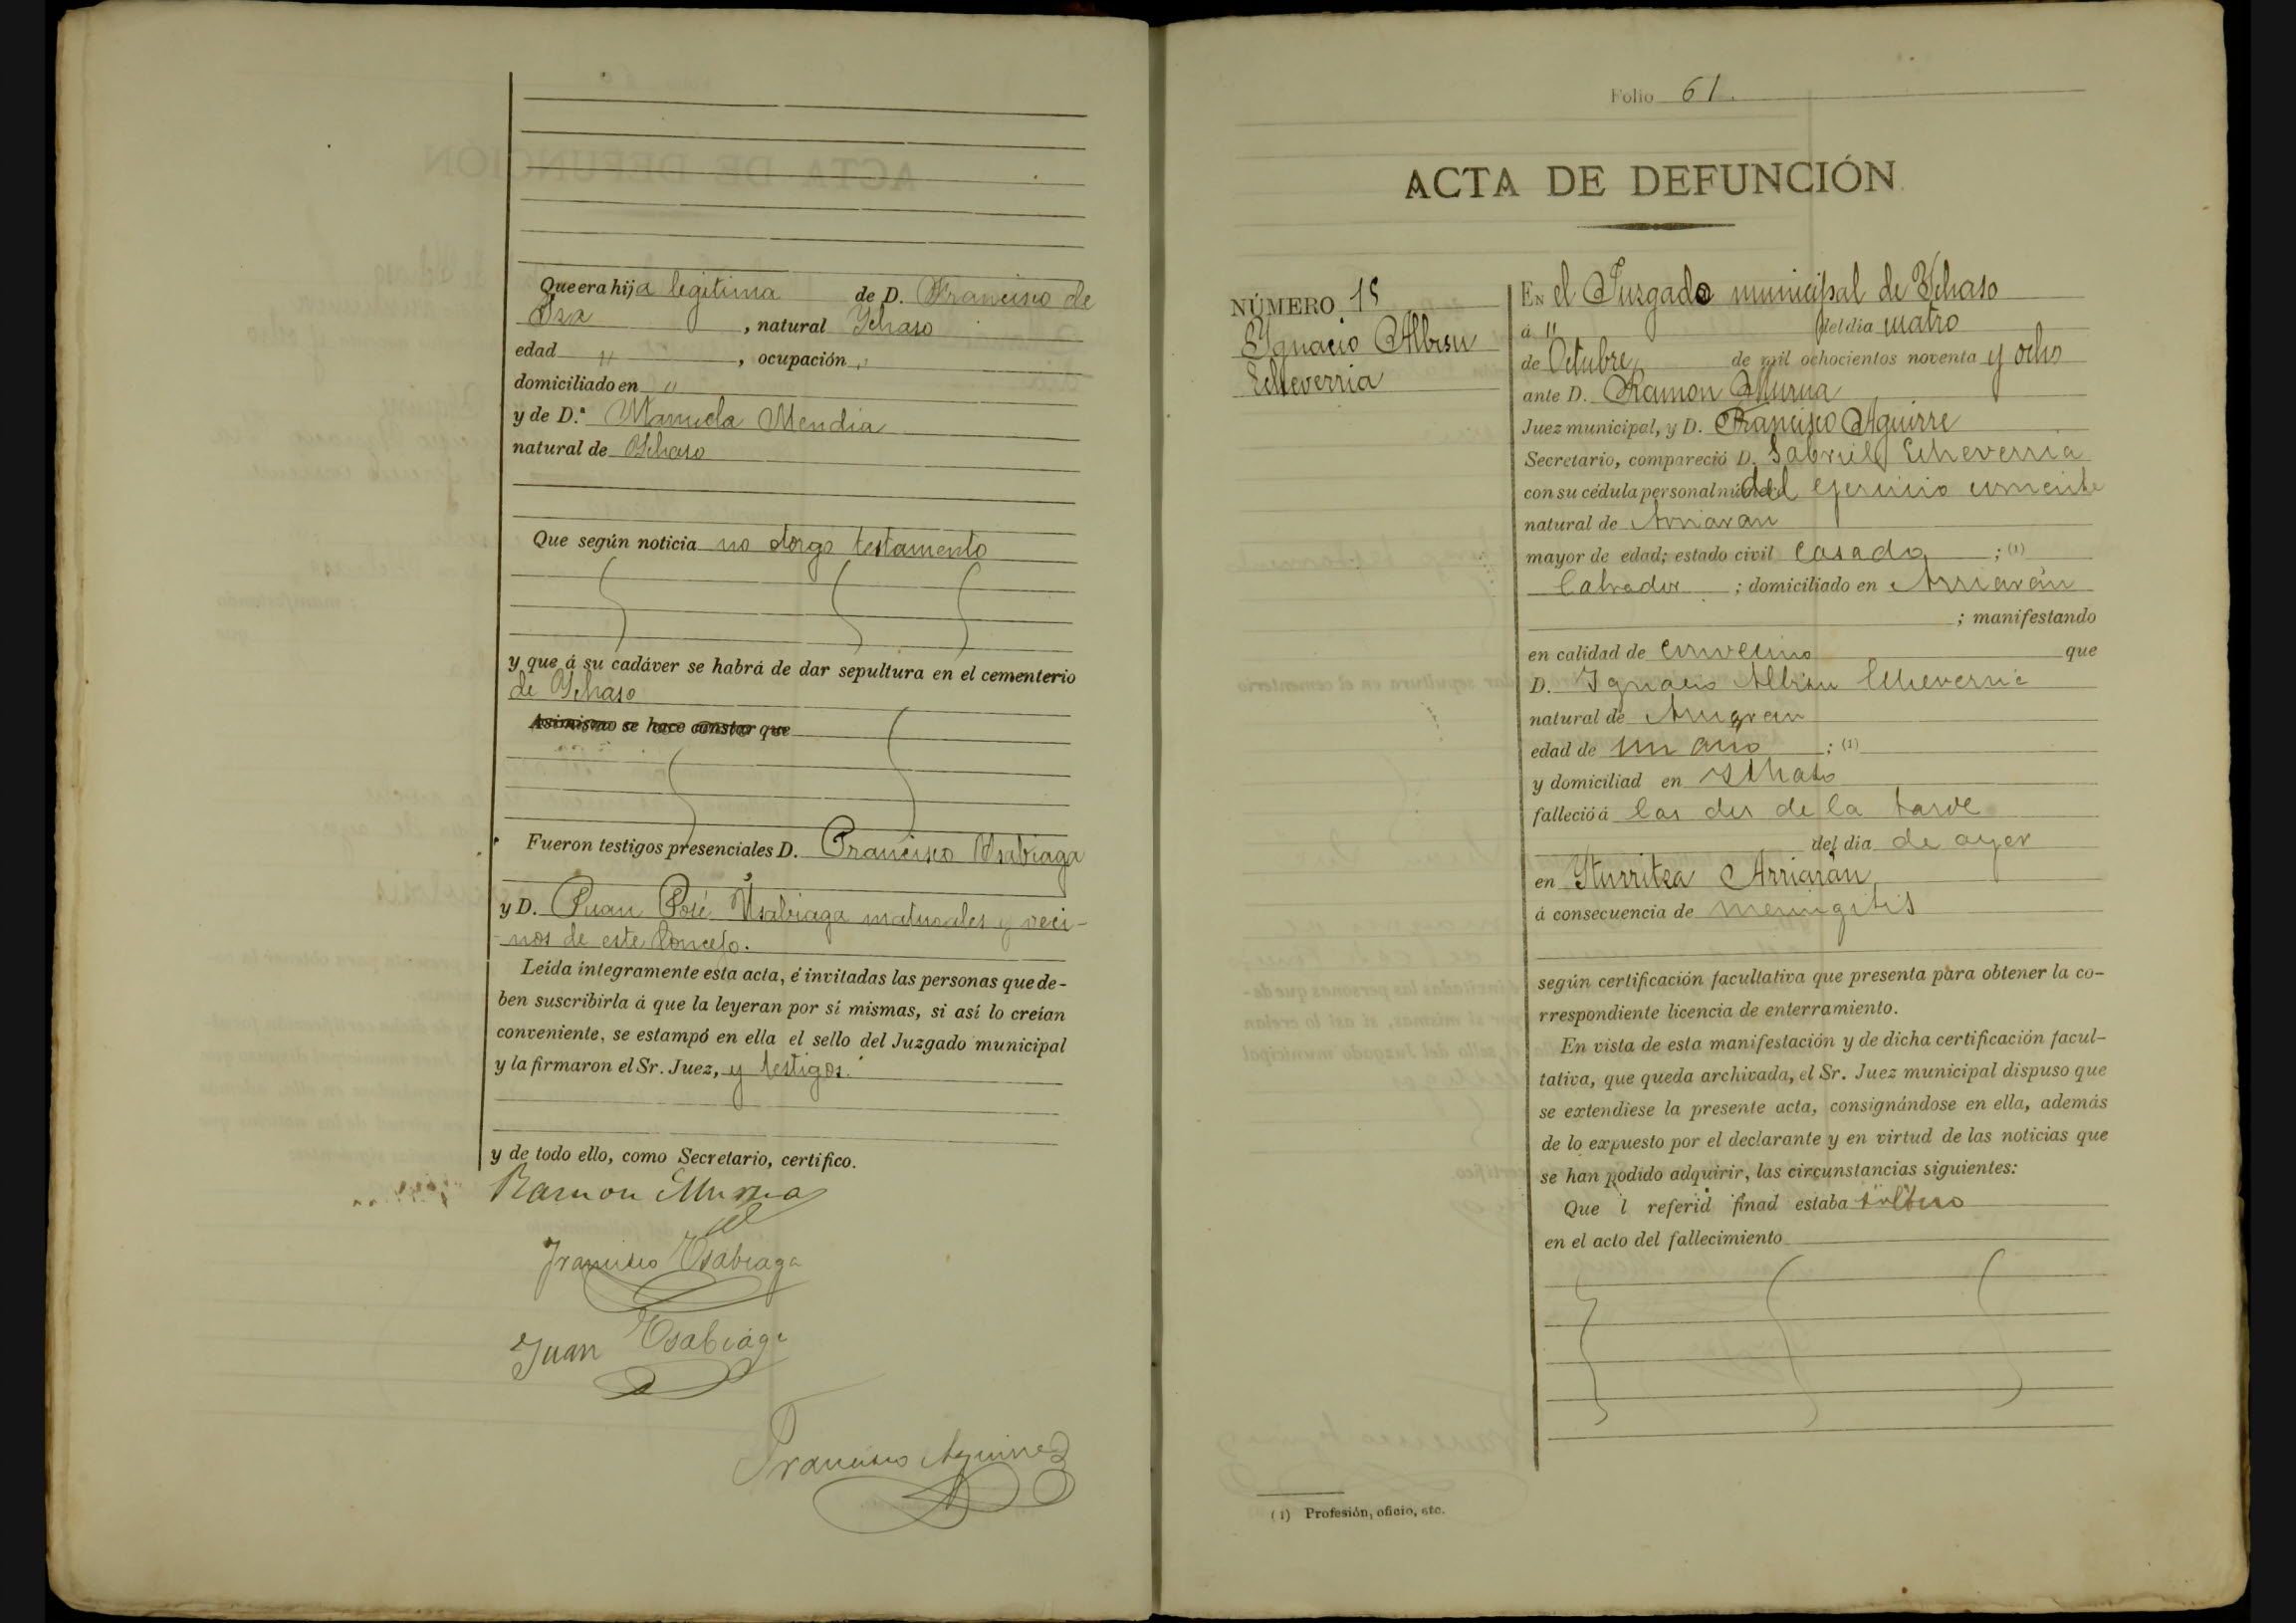 Que era hija legitima de D. Francisco de
Isa, natural Ychaso
edad " , ocupación "
domiciliado en "
y de D.ª Manuela Mendia
natural de Ychaso
Que según noticia no otorgó testamento
y que á su cadáver se habrá de dar sepultura en el cementerio
de Ychaso
Asimismo se hace constar que
Fueron testigos presenciales D. Francisco Usabiaga
y D. Juan José Usabiaga naturales y veci-
nos de este Concejo.
Leída íntegramente esta acta, é invitadas las personas que de-
ben suscribirla á que la leyeran por sí mismas, si así lo creían
conveniente, se estampó en ella el sello del Juzgado municipal
y la firmaron el Sr. Juez, y testigos.
y de todo ello, como Secretario, certifico.
Ramon Murua
Francisco Usabiaga
Juan Usabiaga
Francisco Aguirre
Folio 61.
ACTA DE DEFUNCIÓN
NÚMERO 15
Ygnacio Albisu
Echeverria
En el Juzgado municipal de Ychaso
á " del dia cuatro
de Octubre de mil ochocientos noventa y ocho
ante D. Ramon Murua
Juez municipal, y D. Francisco Aguirre
Secretario, compareció D. Gabriel Echeverria
con su cédula personal número del ejercicio corriente
natural de Arriaran
mayor de edad; estado civil casado ; (1)
labrador ; domiciliado en Arriarán
; manifestando
en calidad de convecino que
D. Ignacio Albisu Echeverria
natural de Arriaran
edad de un año ; (1)
y domiciliad en Ichaso
falleció á las dos de la tarde
del dia de ayer
en Yturritza Arriarán,
á consecuencia de meningitis
según certificación facultativa que presenta para obtener la co-
rrespondiente licencia de enterramiento.
En vista de esta manifestación y de dicha certificación facul-
tativa, que queda archivada, el Sr. Juez municipal dispuso que
se extendiese la presente acta, consignándose en ella, además
de lo expuesto por el declarante y en virtud de las noticias que
se han podido adquirir, las circunstancias siguientes:
Que l referid finad estaba soltero
en el acto del fallecimiento
(1) Profesión, oficio, etc.